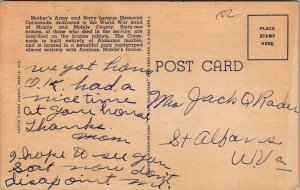 Mother's Army and Navy League Memorial
Colonnade, dedicated to the World War dead
of Mobile and Mobile County. Sixty-one
names, of those who died in the service, are
inscribed on the bronze tablets. The Colon-
nade is built entirely of Alabama marble,
and is located in a beautiful park landscaped
almost entirely with Azaleas, Mobile's flower.
PLACE
STAMP
HERE
POST CARD
we got home
O.K. had a
nice time
at your house
Thanks
mom
I hope to see you
Sat now don't
disapoint me.
Mrs Jack Q Rader
St Albans
W Va